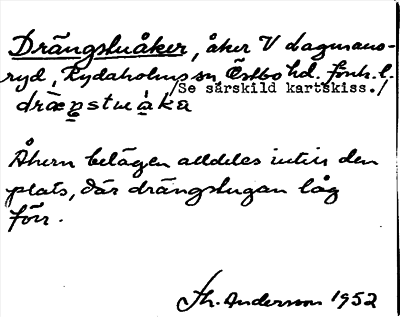 Drängstuåker, åker V Lagmans-
ryd, Rydaholms sn, Östbo hd. Jönk. l.
/Se särskild kartskiss./
Åkern belägen alldeles intill den
plats, där drängstugan låg
förr.
Th. Anderson 1952